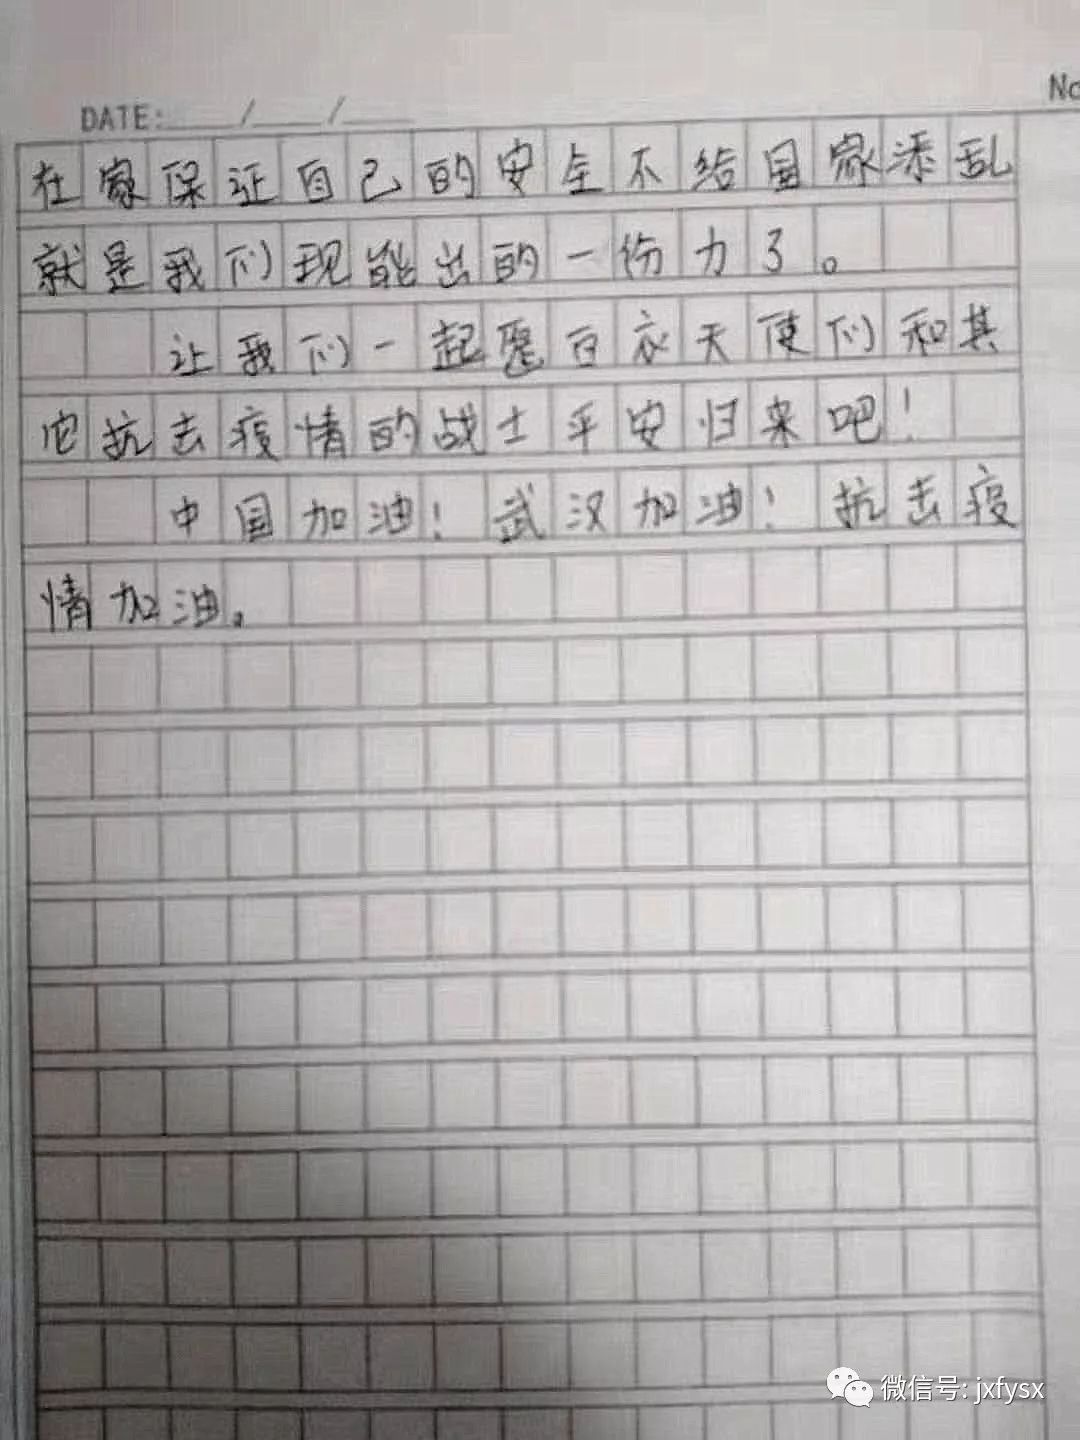 No
DATE: / /
在家保证自己的安全不给国家添乱
就是我们现能出的一份力了。
让我们一起愿白衣天使们和其
它抗击疫情的战士平安归来吧！
中国加油！武汉加油！抗击疫
情加油。
微信号: jxfysx